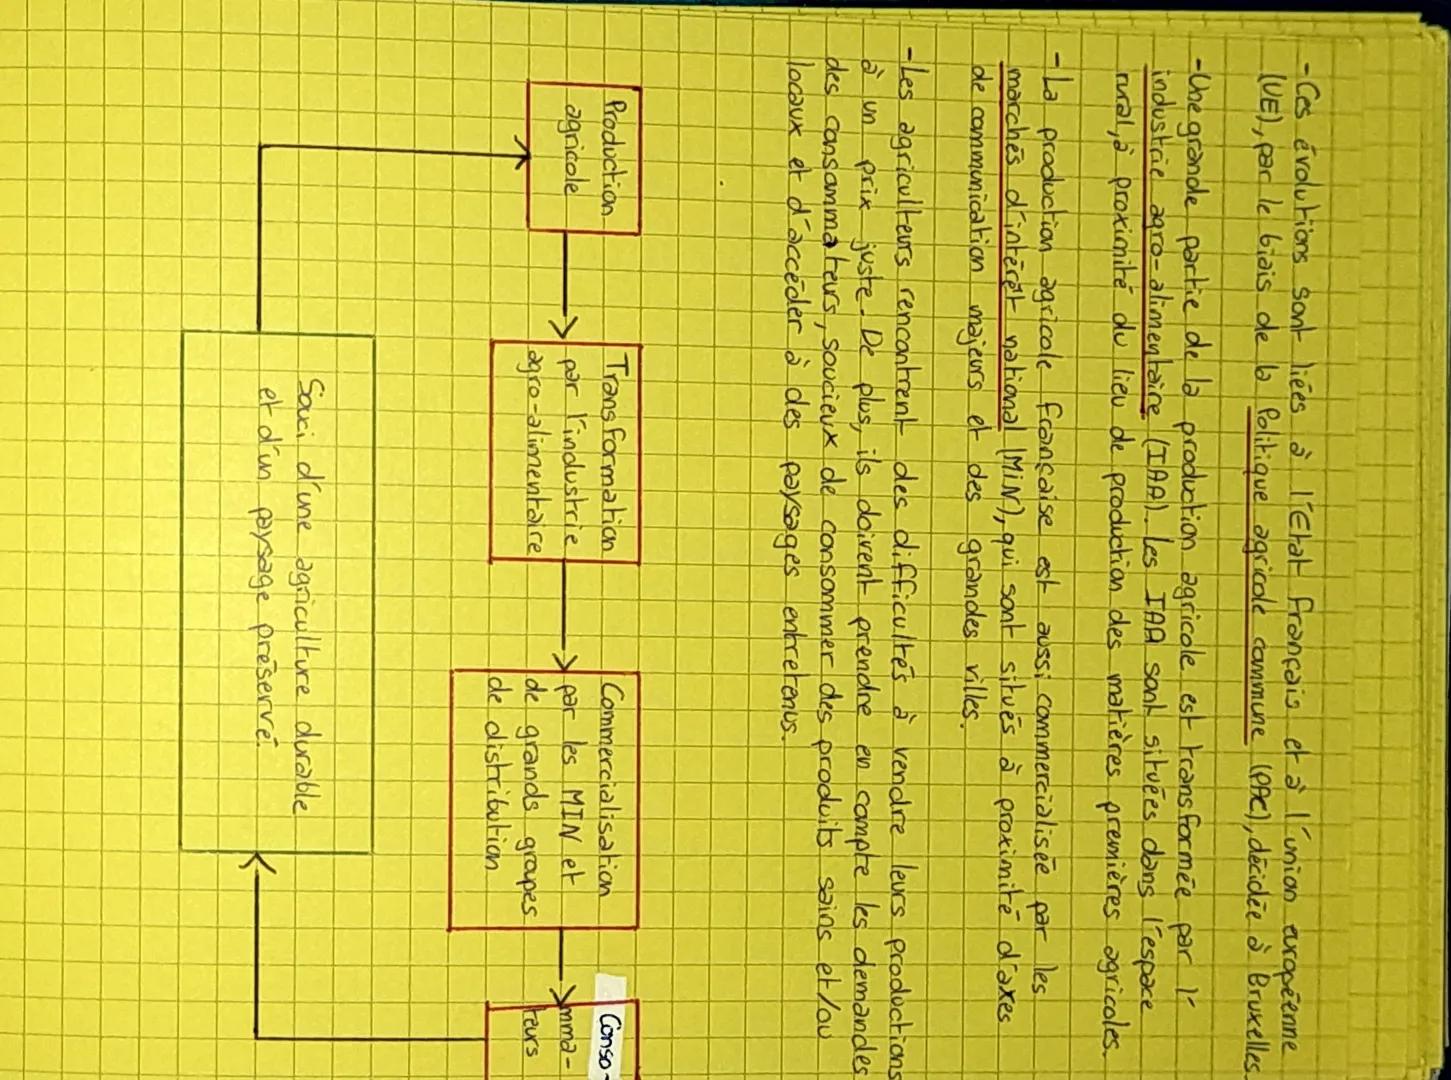 - Ces évolutions sont liées à l'Etat français et à l'union européenne
(UE), par le biais de la Politique agricole commune (PAC), décidée à Bruxelles.
- Une grande partie de la production agricole est transformée par l'
industrie agro-alimentaire (IAA). Les IAA sont situées dans l'espace
rural, à proximité du lieu de production des matières premières agricoles.
- La production agricole française est aussi commercialisée par les
marchés d'intérêt national (MiN), qui sont situés à proximité d'axes
de communication majeurs et des grandes villes.
- Les agriculteurs rencontrent des difficultés à vendre leurs productions
à un prix juste. De plus, ils doivent prendre en compte les demandes
des consommateurs, soucieux de consommer des produits sains et/ou
locaux et d'accéder à des paysages entretenus.
Production
agricole
Transformation
par l'industrie
agro-alimentaire
Commercialisation
par les MIN et
de grands groupes
de distribution
Conso-
mma-
teurs
Souci d'une agriculture durable
et d'un paysage préservé.